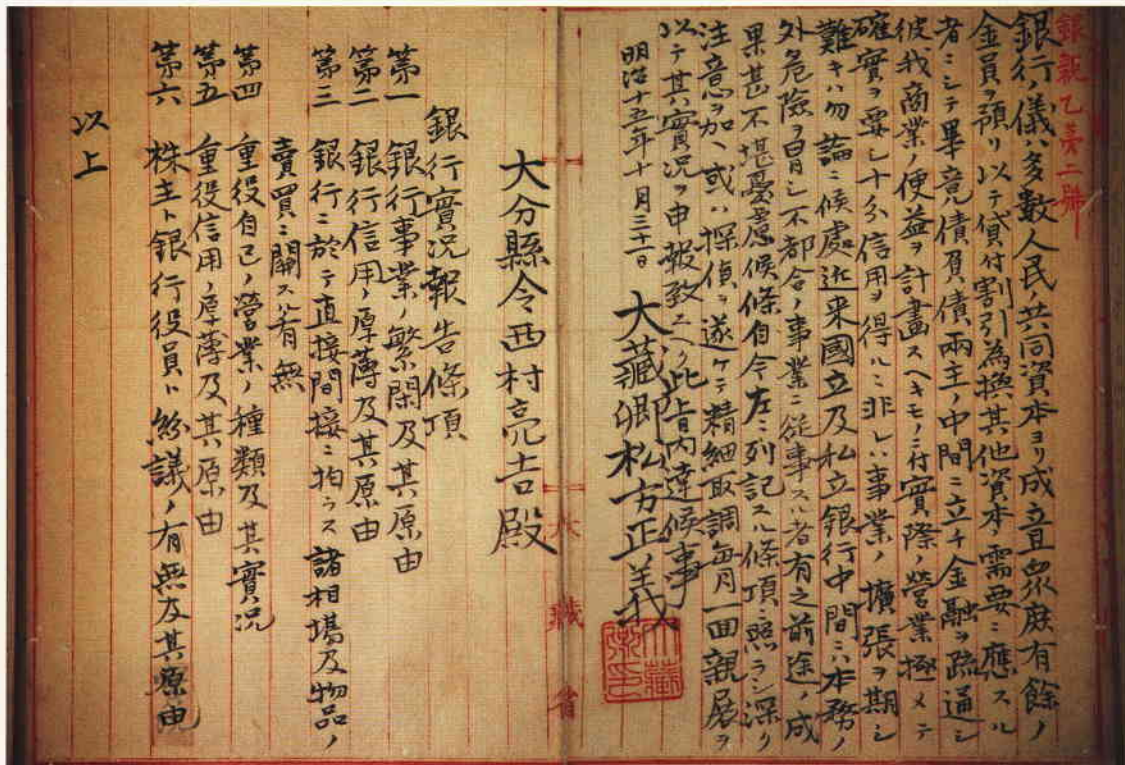 銀親乙第二號
銀行ノ儀ハ多數人民ノ共同資本ヨリ成立且衆庭有餘ノ
金員ヲ預リ以テ貸付割引為換其他資本ノ需要ニ應スル
者ニシテ畢竟債負債兩主ノ中間ニ立チ金融ヲ疏通シ
彼我商業ノ便益ヲ計畫スヘキモノニ付實際ノ營業極メテ
確實ヲ要シ十分信用ヲ得ルニ非レハ事業ノ擴張ヲ期シ
難キハ勿論ニ候處近来國立及私立銀行中間ニハ本務ノ
外危險ヲ冒シ不都合ノ事業ニ從事スル者有之前途ノ成
果甚不堪憂慮候條自今左ニ列記スル條項ニ照ラシ深ク
注意ヲ加ヘ或ハ探偵ヲ遂ケテ精細取調每月一回親展ヲ
以テ其實況ヲ申報致スヘク此旨內達候事
明治十五年十月三十一日
大藏卿松方正義
大分縣令西村亮吉殿
銀行實況報告條項
第一 銀行事業ノ繁閑及其原由
第二 銀行信用ノ厚薄及其原由
第三 銀行ニ於テ直接間接ニ拘ラス諸相場及物品ノ
賣買ニ關スル有無
第四 重役自己ノ營業ノ種類及其實況
第五 重役信用ノ厚薄及其原由
第六 株主ト銀行役員ト紛議ノ有無及其原由
以上
大藏省